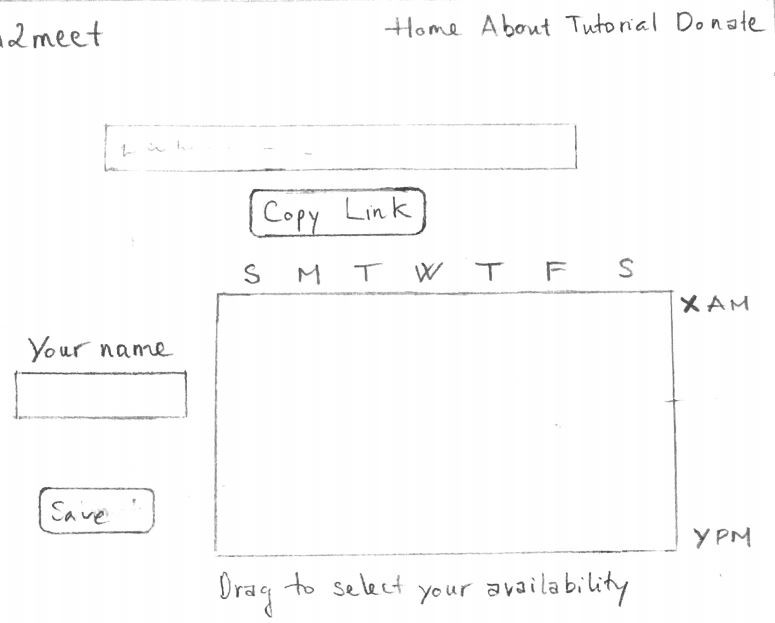 2meet
Home About Tutorial Donate
Copy Link
S M T W T F S
X AM
Your name
Save
Y PM
Drag to select your availability